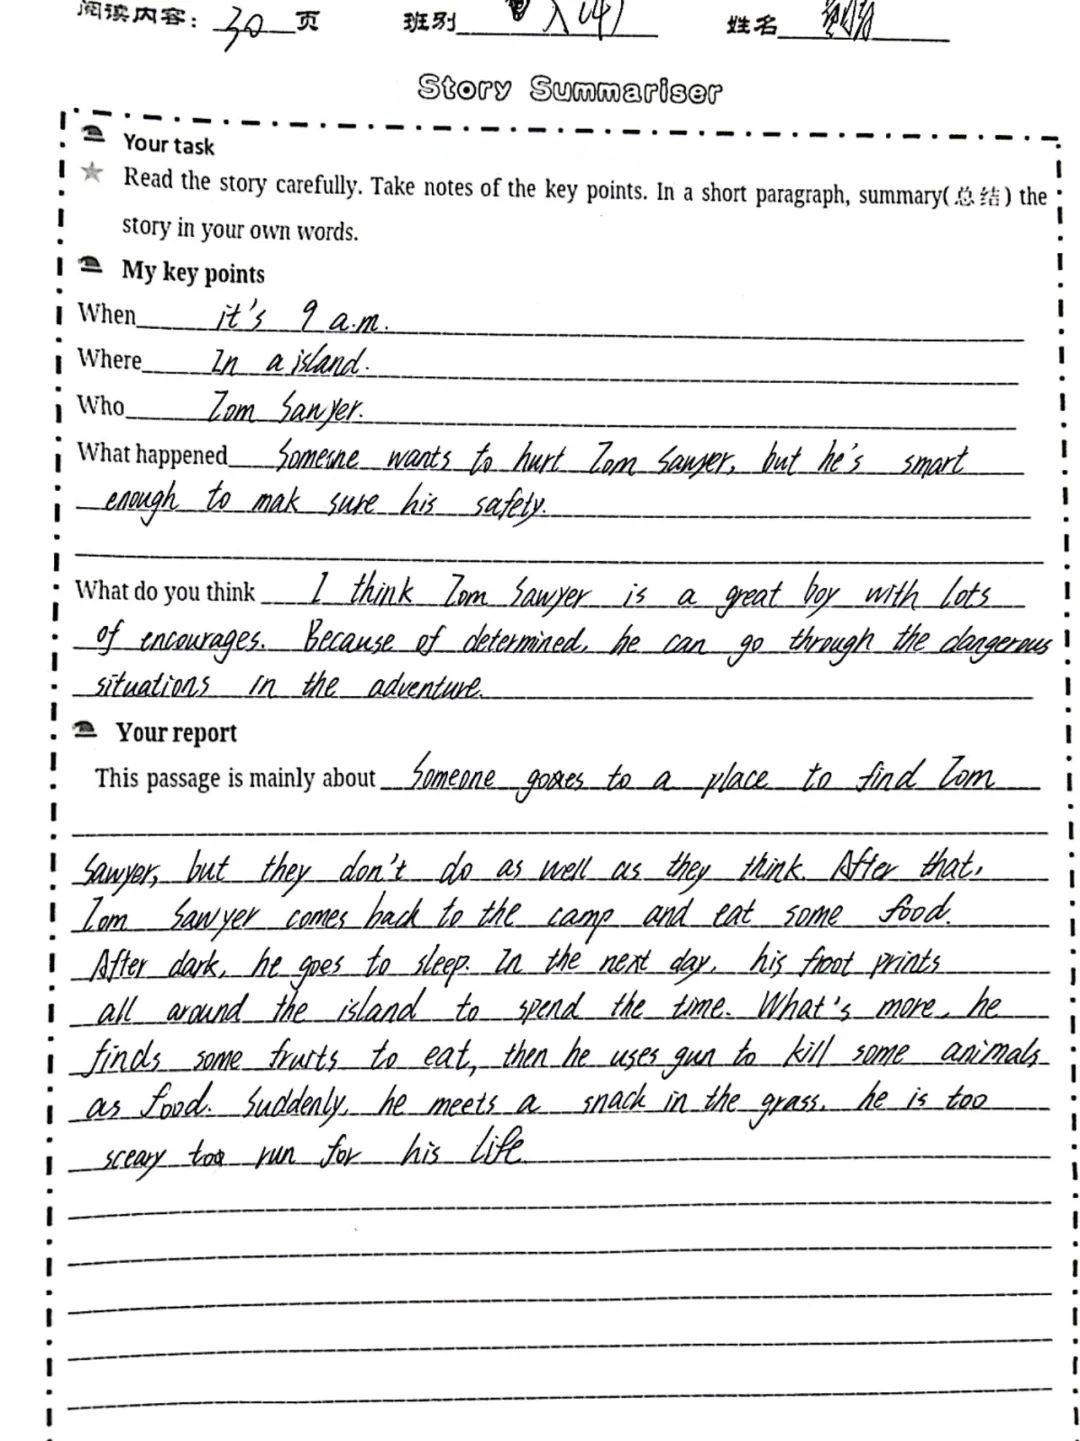 阅读内容: 30 页 班别 八(4) 姓名
Story Summariser
Your task
Read the story carefully. Take notes of the key points. In a short paragraph, summary(总结) the
story in your own words.
My key points
When it's 9 a.m.
Where In a island.
Who Tom Sawyer.
What happened Someone wants to hurt Tom Sawyer, but he's smart
enough to mak sure his safety.
What do you think I think Tom Sawyer is a great boy with lots
of encourages. Because of determined, he can go through the dangerous
situations in the adventure.
Your report
This passage is mainly about Someone goes to a place to find Tom
Sawyer, but they don't do as well as they think. After that,
Tom Sawyer comes back to the camp and eat some food.
After dark, he goes to sleep. In the next day, his froot prints
all around the island to spend the time. What's more, he
finds some fruits to eat, then he uses gun to kill some animals
as food. Suddenly, he meets a snack in the grass, he is too
sceary too run for his life